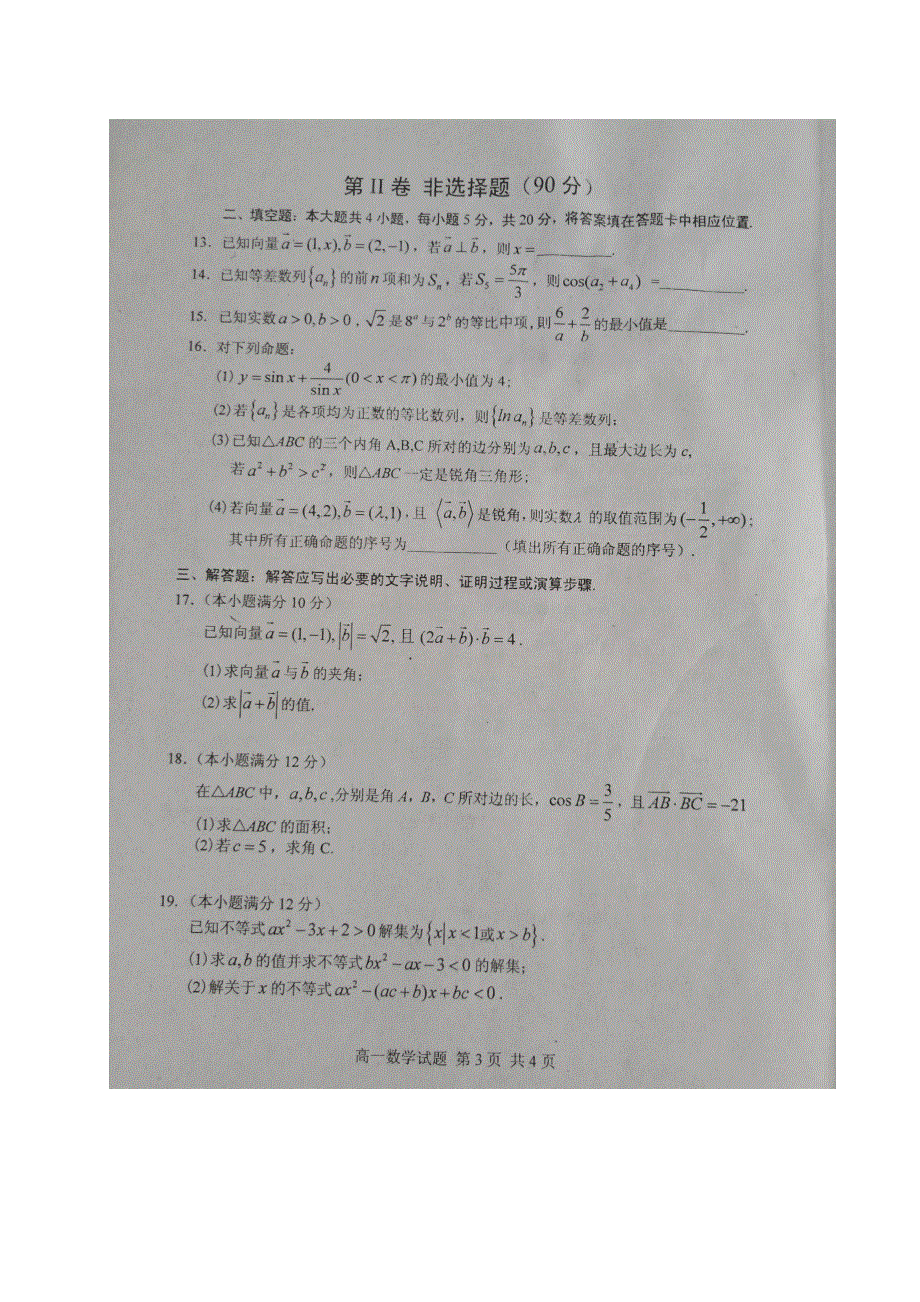 第 II 卷 非选择题（90 分）
二、填空题：本大题共 4 小题，每小题 5 分，共 20 分，将答案填在答题卡中相应位置.
13．已知向量 $\vec{a}=(1,x),\vec{b}=(2,-1)$，若 $\vec{a}\perp\vec{b}$，则 $x=$__________.
14．已知等差数列 $\{a_n\}$ 的前 $n$ 项和为 $S_n$，若 $S_5=\frac{5\pi}{3}$，则 $\cos(a_2+a_4)$ =__________.
15．已知实数 $a>0,b>0$，$\sqrt{2}$ 是 $8^a$ 与 $2^b$ 的等比中项，则 $\frac{6}{a}+\frac{2}{b}$ 的最小值是__________.
16．对下列命题：
(1) $y=\sin x+\frac{4}{\sin x}(0<x<\pi)$ 的最小值为 4；
(2)若 $\{a_n\}$ 是各项均为正数的等比数列，则 $\{ln a_n\}$ 是等差数列；
(3)已知△ABC 的三个内角 A,B,C 所对的边分别为 $a,b,c$，且最大边长为 c,
若 $a^2+b^2>c^2$，则△ABC 一定是锐角三角形；
(4)若向量 $\vec{a}=(4,2),\vec{b}=(\lambda,1)$，且 $\langle\vec{a},\vec{b}\rangle$ 是锐角，则实数 $\lambda$ 的取值范围为 $(-\frac{1}{2},+\infty)$；
其中所有正确命题的序号为__________（填出所有正确命题的序号）.
三、解答题：解答应写出必要的文字说明、证明过程或演算步骤.
17．（本小题满分 10 分）
已知向量 $\vec{a}=(1,-1),|\vec{b}|=\sqrt{2}$, 且 $(2\vec{a}+\vec{b})\cdot\vec{b}=4$.
(1)求向量 $\vec{a}$ 与 $\vec{b}$ 的夹角；
(2)求 $|\vec{a}+\vec{b}|$ 的值.
18．（本小题满分 12 分）
在△ABC 中，$a,b,c$ ,分别是角 A，B，C 所对边的长，$\cos B=\frac{3}{5}$，且 $\overrightarrow{AB}\cdot\overrightarrow{BC}=-21$
(1)求△ABC 的面积；
(2)若 $c=5$，求角 C.
19．（本小题满分 12 分）
已知不等式 $ax^2-3x+2>0$ 解集为 $\{x|x<1或x>b\}$.
(1)求 $a,b$ 的值并求不等式 $bx^2-ax-3<0$ 的解集；
(2)解关于 $x$ 的不等式 $ax^2-(ac+b)x+bc<0$.
高一数学试题 第 3 页 共 4 页